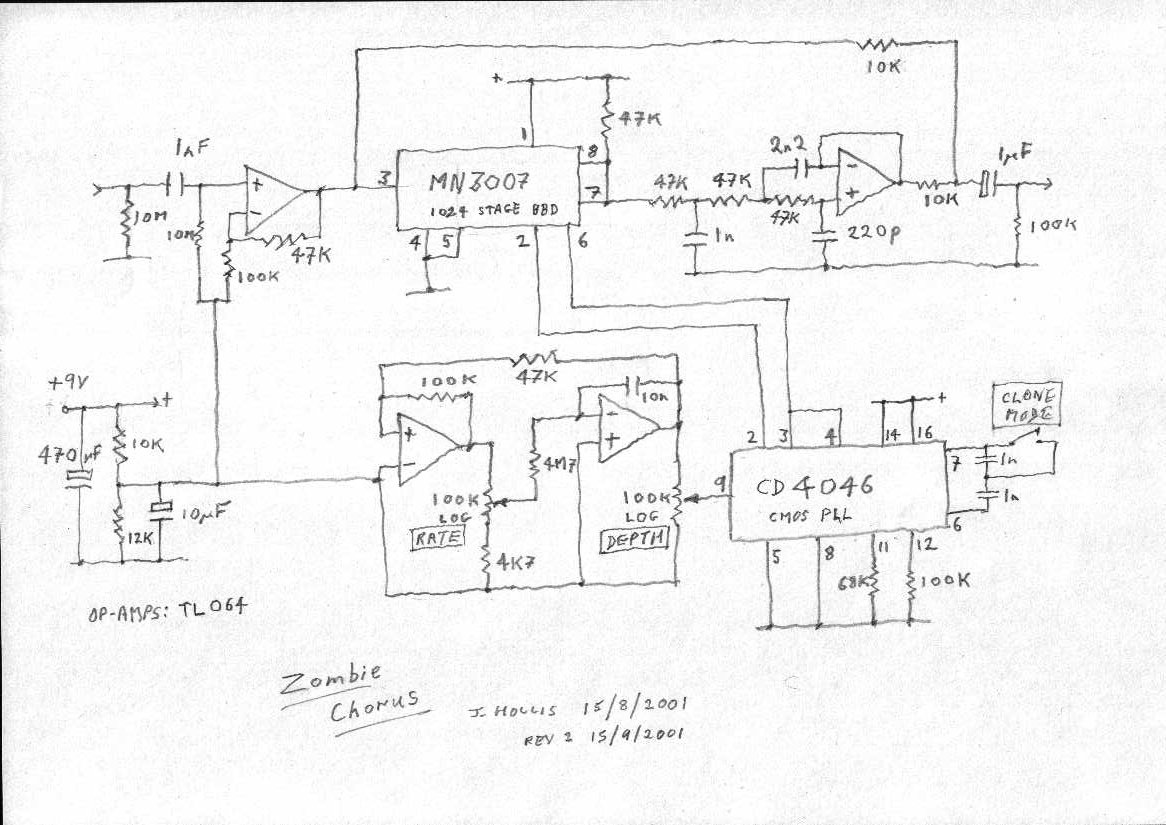 10K
+
47K
1
1nF
3
MN3007
1024 STAGE BBD
8
7
47K
47K
2n2
-
+
47K
10K
1µF
+
-
10M
10M
47K
100K
4
5
2
6
1n
220p
100K
+9V
+
470µF
10K
10µF
12K
47K
100K
+
-
10n
-
+
4M7
100K
LOG
RATE
4K7
100K
LOG
DEPTH
2
3
4
14
16
+
CLONE
MODE
9
CD4046
CMOS PLL
7
1n
1n
6
5
8
11
12
68K
100K
OP-AMPS: TL064
Zombie
Chorus
J. HOLLIS 15/8/2001
REV 2 15/9/2001